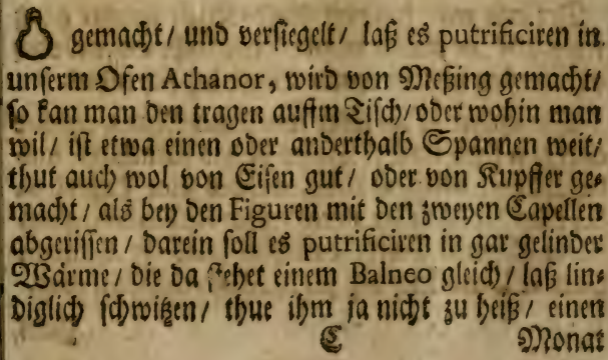 gemacht/ und versiegelt/ laß es putrificiren in
unserm Ofen Athanor, wird von Meßing gemacht/
so kan man den tragen auffm Tisch/ oder wohin man
wil/ ist etwa einen oder anderthalb Spannen weit/
thut auch wol von Eisen gut/ oder von Kupffer ge-
macht/ als bey den Figuren mit den zweyen Capellen
abgerissen/ darein soll es putrificiren in gar gelinder
Wärme/ die da stehet einem Balneo gleich/ laß lin-
diglich schwitzen/ thue ihm ja nicht zu heiß/ einen
C Monat